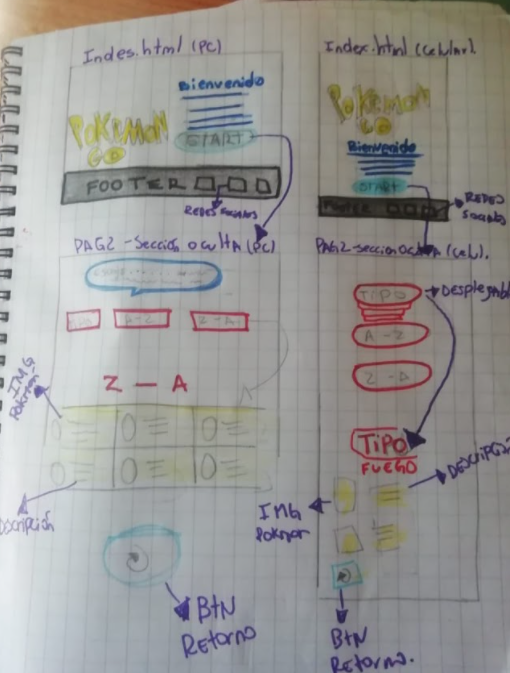 Indes.html (PC)
Bienvenido
POKEMON
GO
START
FOOTER
REDES SOCIALES
PAG2 - Sección ocultA (PC)
A-Z
Z-A
Z — A
IMG
Pokmon
Descripción
BtN
Retorno
Index.html (celular).
POKEMON
GO
Bienvenido
START
FOOTER
REDES
Sociales
PAG2-seccion ocultA (cel).
TIPO
Desplegable
A-Z
Z-A
TIPO
FUEGO
DESCRIPCI
IMG
Pokmon
BtN
Retorno.